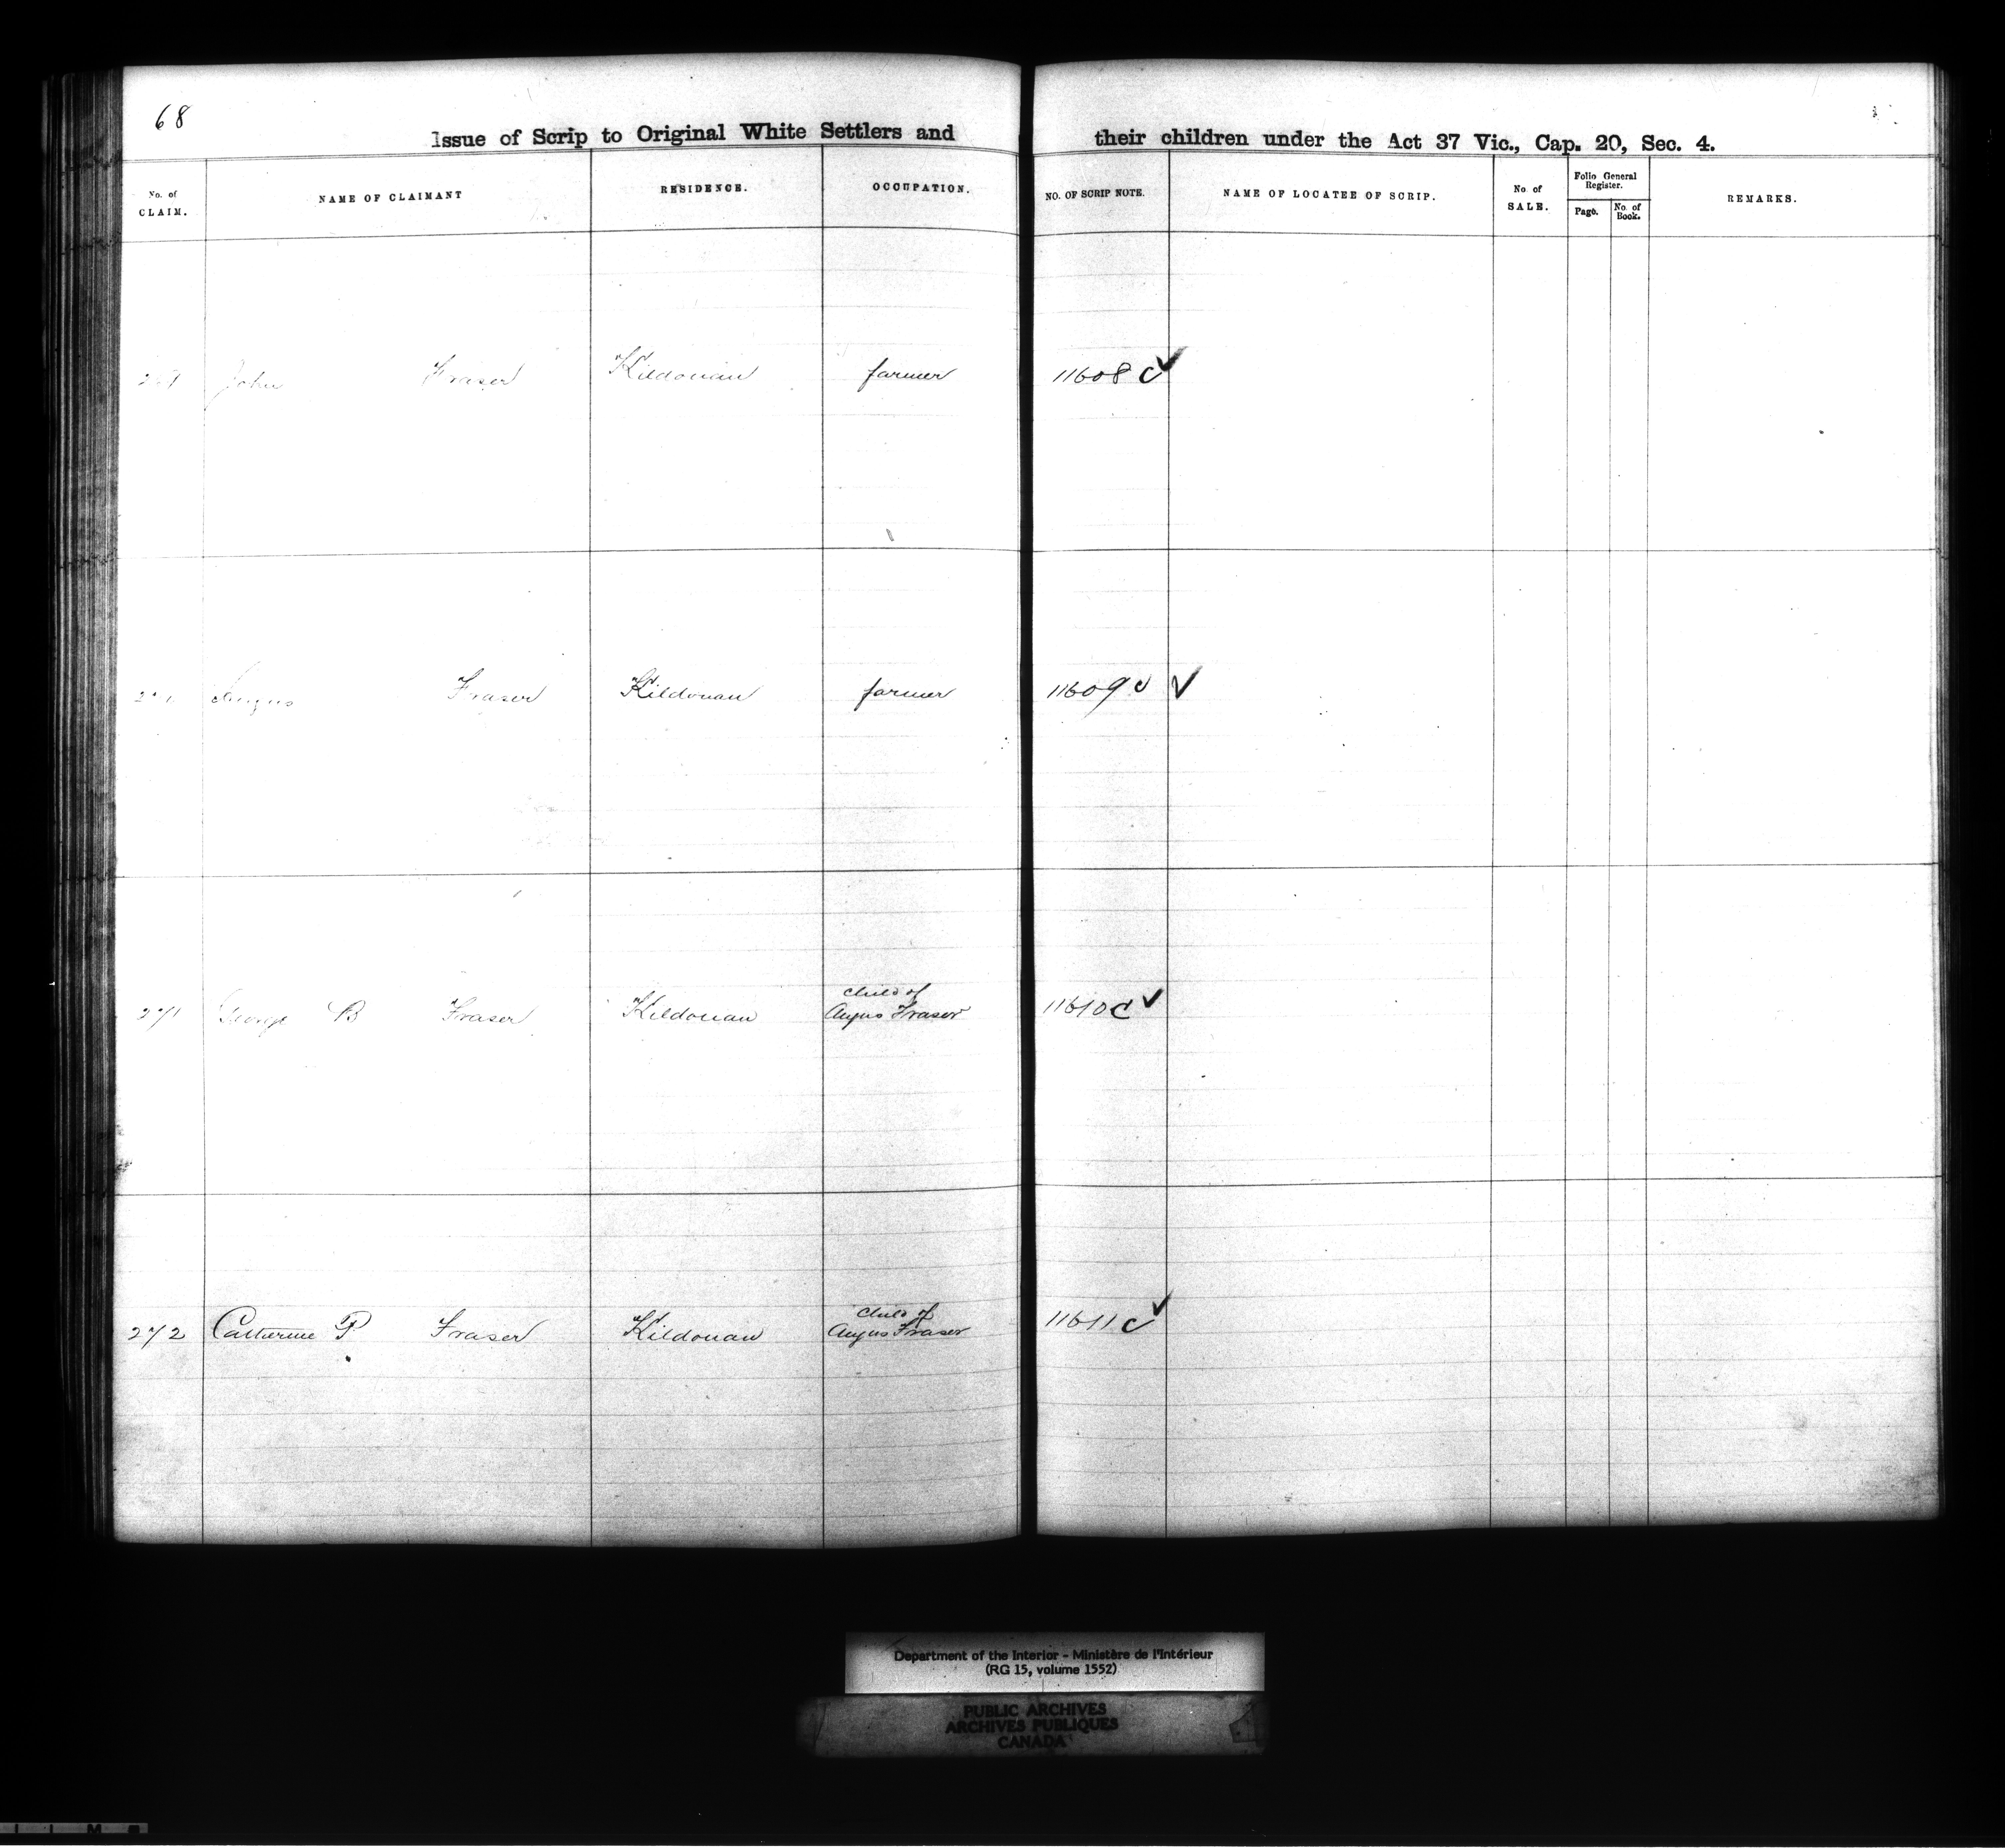 68
Issue of Scrip to Original White Settlers and their children under the Act 37 Vic., Cap. 20, Sec. 4.
No. of CLAIM. NAME OF CLAIMANT RESIDENCE. OCCUPATION. NO. OF SCRIP NOTE. NAME OF LOCATEE OF SCRIP. No. of SALE. Folio General Register. Page. No. of Book. REMARKS.
John Fraser Kildonan farmer 11608 C ✓
Angus Fraser Kildonan farmer 11609 C ✓
271 George B Fraser Kildonan child of Angus Fraser 11610 C ✓
272 Catherine P Fraser Kildonan child of Angus Fraser 11611 C ✓
Department of the Interior - Ministère de l'Intérieur
(RG 15, volume 1552)
PUBLIC ARCHIVES
ARCHIVES PUBLIQUES
CANADA